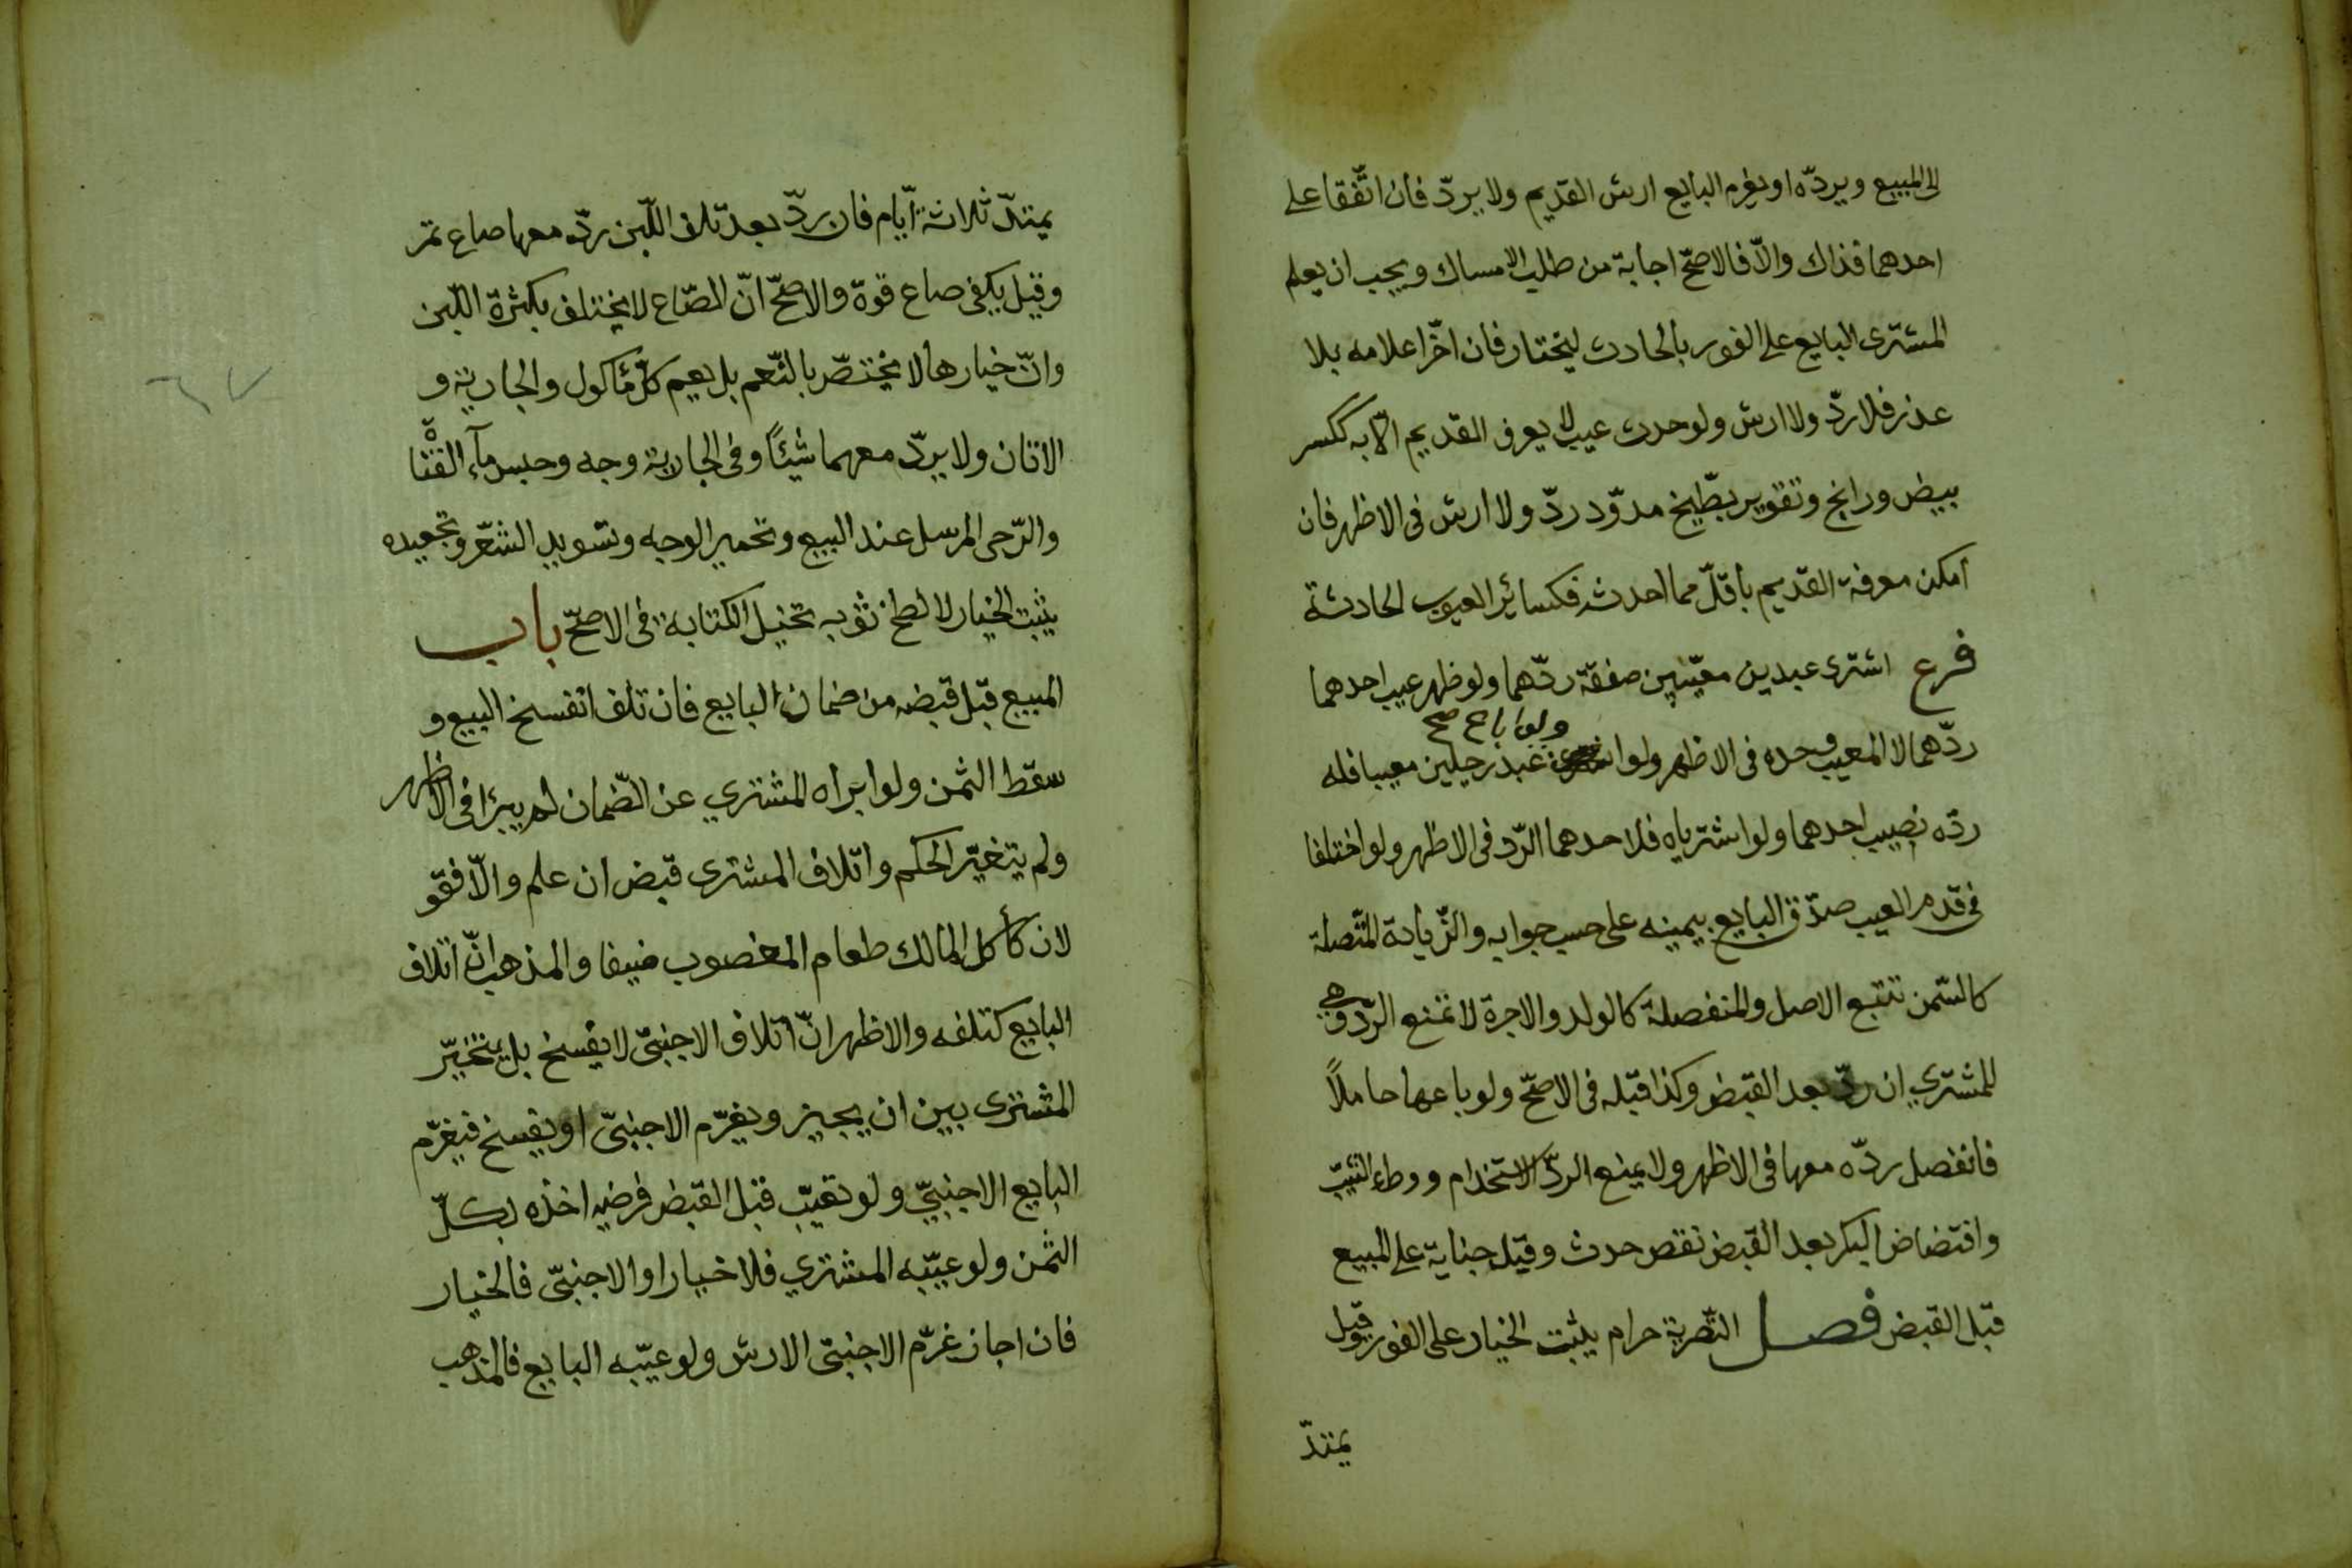 الى المبيع ويردّه او يغرم البايع ارش القديم ولا يردّ فان اتّفقا على
احدهما فذاك والّا فالاصحّ اجابة من طلب الامساك ويجب ان يعلم
المشترى البايع على الفور بالحادث ليختار فان اخّر اعلامه بلا
عذر فلا ردّ ولا ارش ولو حدث عيب لا يعرف القديم الّا به ككسر
بيض ورانج وتقوير بطّيخ مدوّد ردّ ولا ارش فى الاظهر فان
امكن معرفة القديم باقلّ مما احدثه فكسائر العيوب الحادثة
فرع اشترى عبدين معيّبين صفقة ردّهما ولو ظهر عيب احدهما
ولو باع صح
ردّهما لا المعيب وحده فى الاظهر ولو اشترى عبد رجلين معيبا فله
ردّه نصيب احدهما ولو اشترياه فلاحدهما الرّد فى الاظهر ولو اختلفا
فى قدم العيب صدّق البايع بيمينه على حسب جوابه والزّيادة المتّصلة
كالسّمن تتبع الاصل والمنفصلة كالولد والاجرة لا تمنع الرّد وهى
للمشتري ان ردّ بعد القبض وكذا قبله فى الاصحّ ولو باعها حاملًا
فانفصل ردّه معها فى الاظهر ولا يمنع الردّ الاستخدام ووطء الثيّب
وافتضاض البكر بعد القبض نقص حدث وقيل جناية على المبيع
قبل القبض فصل التّصرية حرام يثبت الخيار على الفور وقيل
يمتدّ
يمتدّ ثلاثة ايّام فان ردّ بعد تلف اللّبن ردّ معها صاع تمر
وقيل يكفى صاع قوة والاصحّ انّ الصّاع لا يختلف بكثرة اللّبن
وانّ خيارها لا يختصّ بالنّعم بل يعم كلّ مأكول والجارية و
الاتان ولا يردّ معهما شيئًا وفى الجارية وجه وحبس مآء القناة
والرّحى المرسل عند البيع وتحمير الوجه وتسويد الشّعر وتجعيده
يثبت الخيار لا لطخ ثوبه تخيل الكتابة فى الاصحّ باب
المبيع قبل قبضه من ضمان البايع فان تلف انفسخ البيع و
سقط الثمن ولو ابراه المشتري عن الضّمان لم يبرأ فى الاظهر
ولم يتغيّر الحكم واتلاف المشترى قبض ان علم والّا فقو
لان كأكل المالك طعام المغصوب ضيفا والمذهب انّ اتلاف
البايع كتلفه والاظهر انّ اتلاف الاجنبىّ لا يفسخ بل يتخيّر
المشترى بين ان يجيز ويغرّم الاجنبىّ او يفسخ فيغرّم
البايع الاجنبيّ ولو تعيّب قبل القبض فرضيه اخذه بكلّ
الثّمن ولو عيّبه المشتري فلا خيار او الاجنبىّ فالخيار
فان اجاز غرّم الاجنبى الارش ولو عيّبه البايع فالمذهب